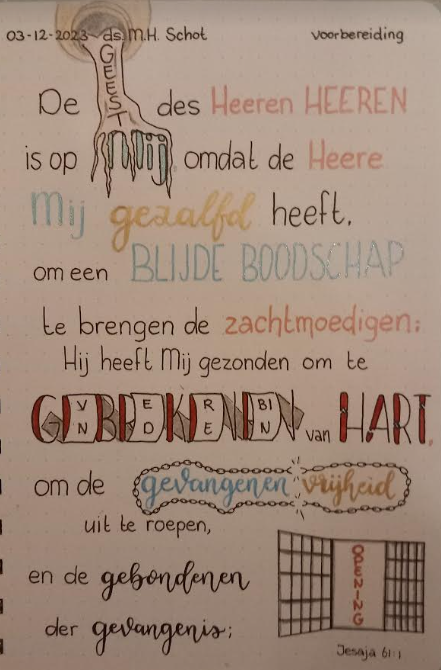 03-12-2023 ~ ds. M.H. Schot voorbereiding
De GEEST des Heeren HEEREN
is op Mij, omdat de Heere
Mij gezalfd heeft,
om een BLIJDE BOODSCHAP
te brengen de zachtmoedigen;
Hij heeft Mij gezonden om te
VERBI
NDEN
GEBROKENEN van HART,
om de gevangenen vrijheid
uit te roepen,
en de gebondenen OPENING
der gevangenis;
Jesaja 61:1